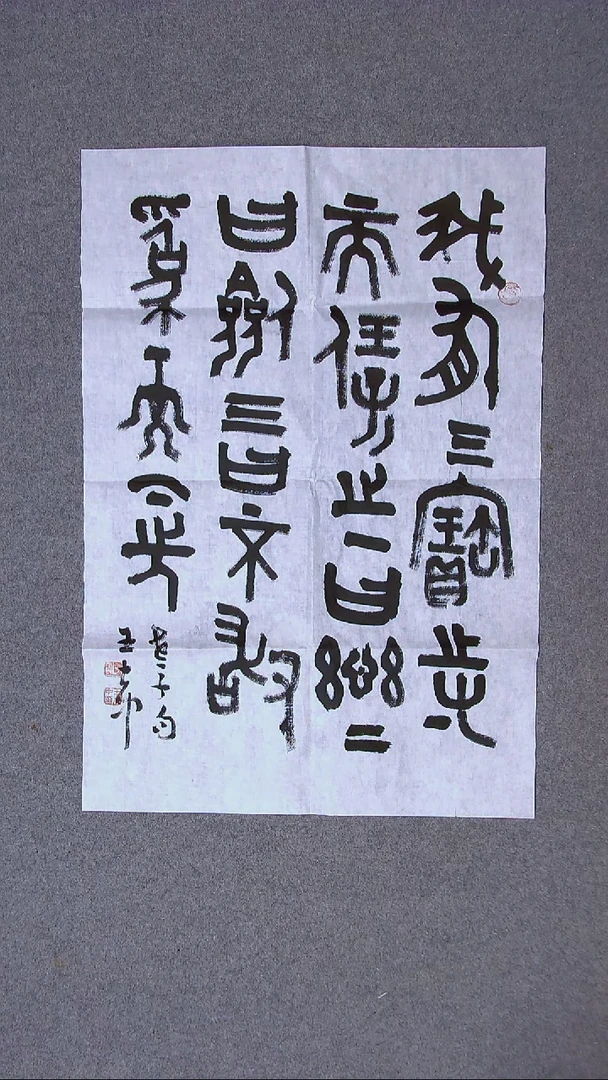 我有三寶持
而保之一曰慈二
曰儉三曰不敢
為天下先
老子句
王